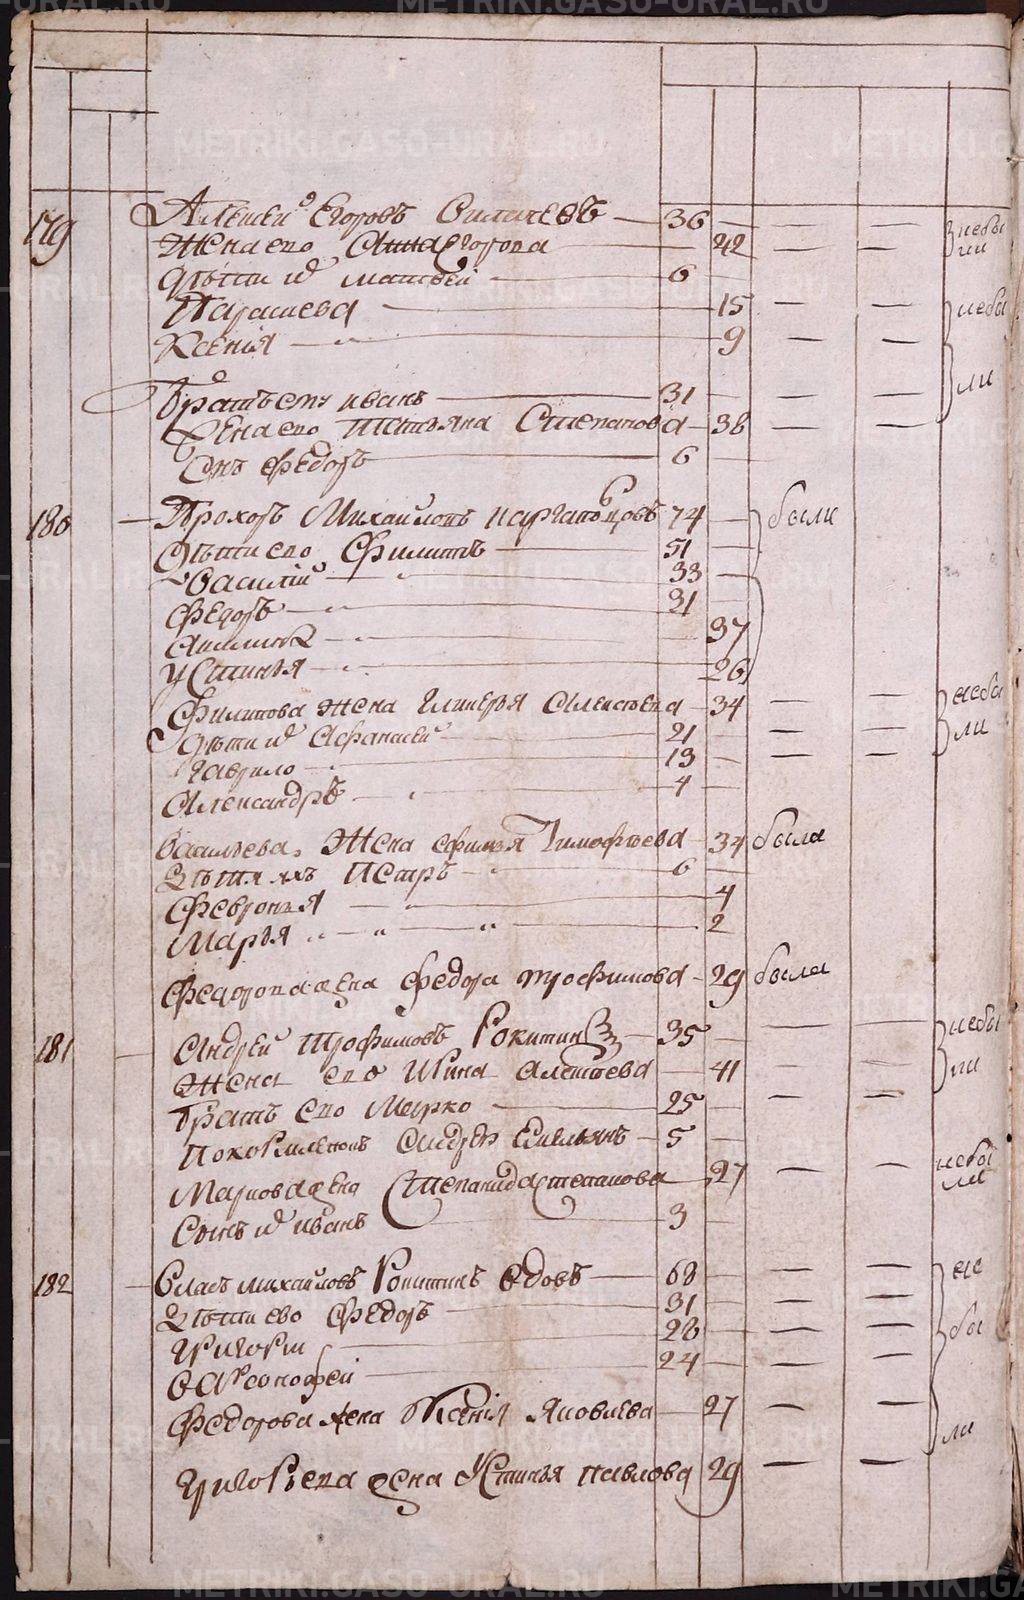 179 Алексей Егоровъ Силачевъ 36 небы
Жена его Анна Егорова 42 ли
Дѣти их Матвей 6
Парасцева 15 небы
Ксенiя 9
ли
Братъ ему иванъ 31
Жена его Татьяна Степанова 38
Снъ Федоръ 6
180 Прохоръ Михайловъ 74 были
Дѣти его Филипъ 51
Василiй 33
Федоръ 31
37
Устинья 26
Филипова жена Гликерья Алексѣева 34 небы
Дѣти их Афанасей 21 ли
Гаврило 13
Александръ 4
Васильева жена Тимофѣева 34 была
Дѣти ихъ Петръ 6
Февронья 4
Марья 2
Федорова жена Федора трофимова 29 была
181 Андрей Трофимовъ Рокитин 35 небы
Жена его Ирина Алексѣева 41 ли
Братъ его Марко 25
Емельянъ 5
Маркова жена Степанида степанова 27 небы
ли
Сынъ их иванъ 3
182 Власъ михайловъ Рокитинъ вдовъ 68 не
Дѣти ево Федоръ 31
Григорiи 28 бы
Варсонофей 24
Федорова жена Ксенiя Яковлева 27
ли
Григорьева жена Устинья павлова 29
METRIKI.GASO-URAL.RU